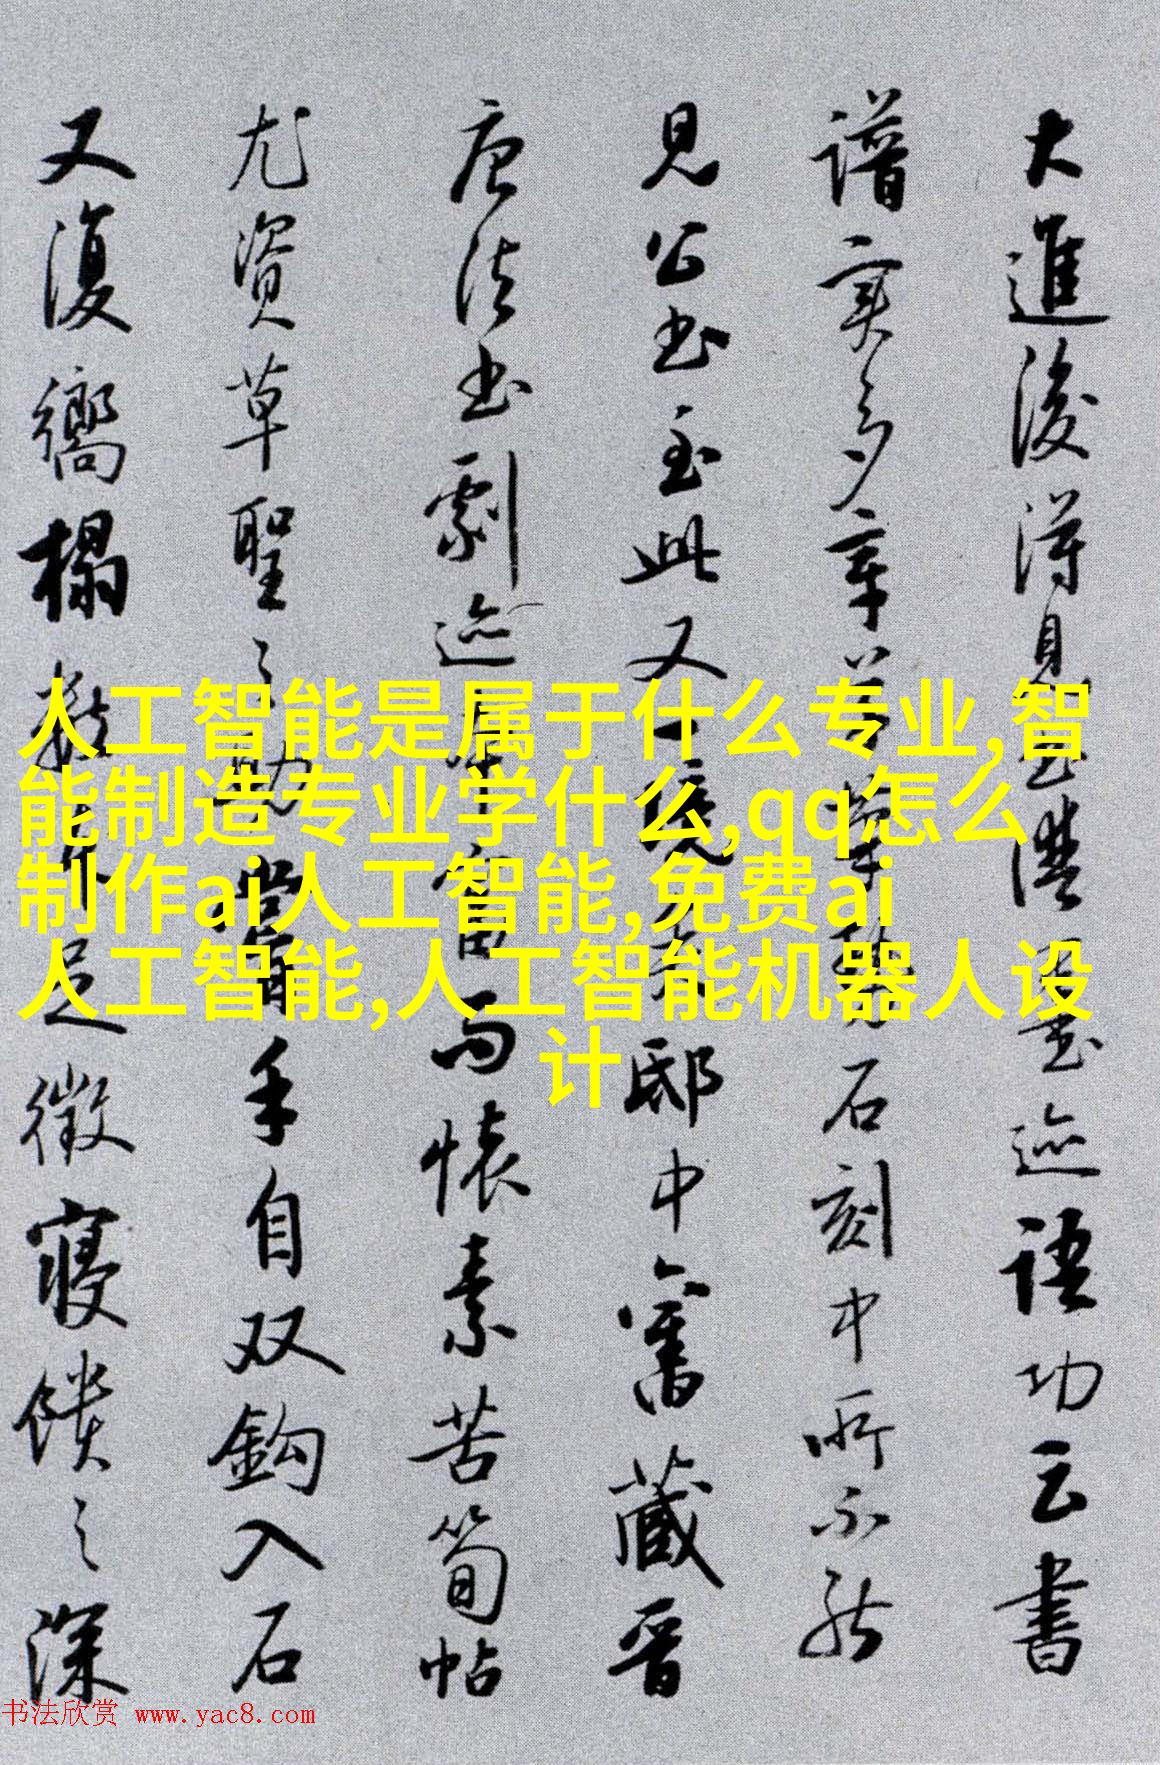 大進後得見
迹語功云書
譜實多章草
石刻中所不能
見公書至此又一
邸中舊藏晉
唐法書劇迹
而懷素苦筍帖
尤資草聖之助
手自双鈎入石
又復嚮搨數
足徵寢饋之深
人工智能是属于什么专业,智
能制造专业学什么,qq怎么
制作ai人工智能,免费ai
人工智能,人工智能机器人设
计
书法欣赏 www.yac8.com